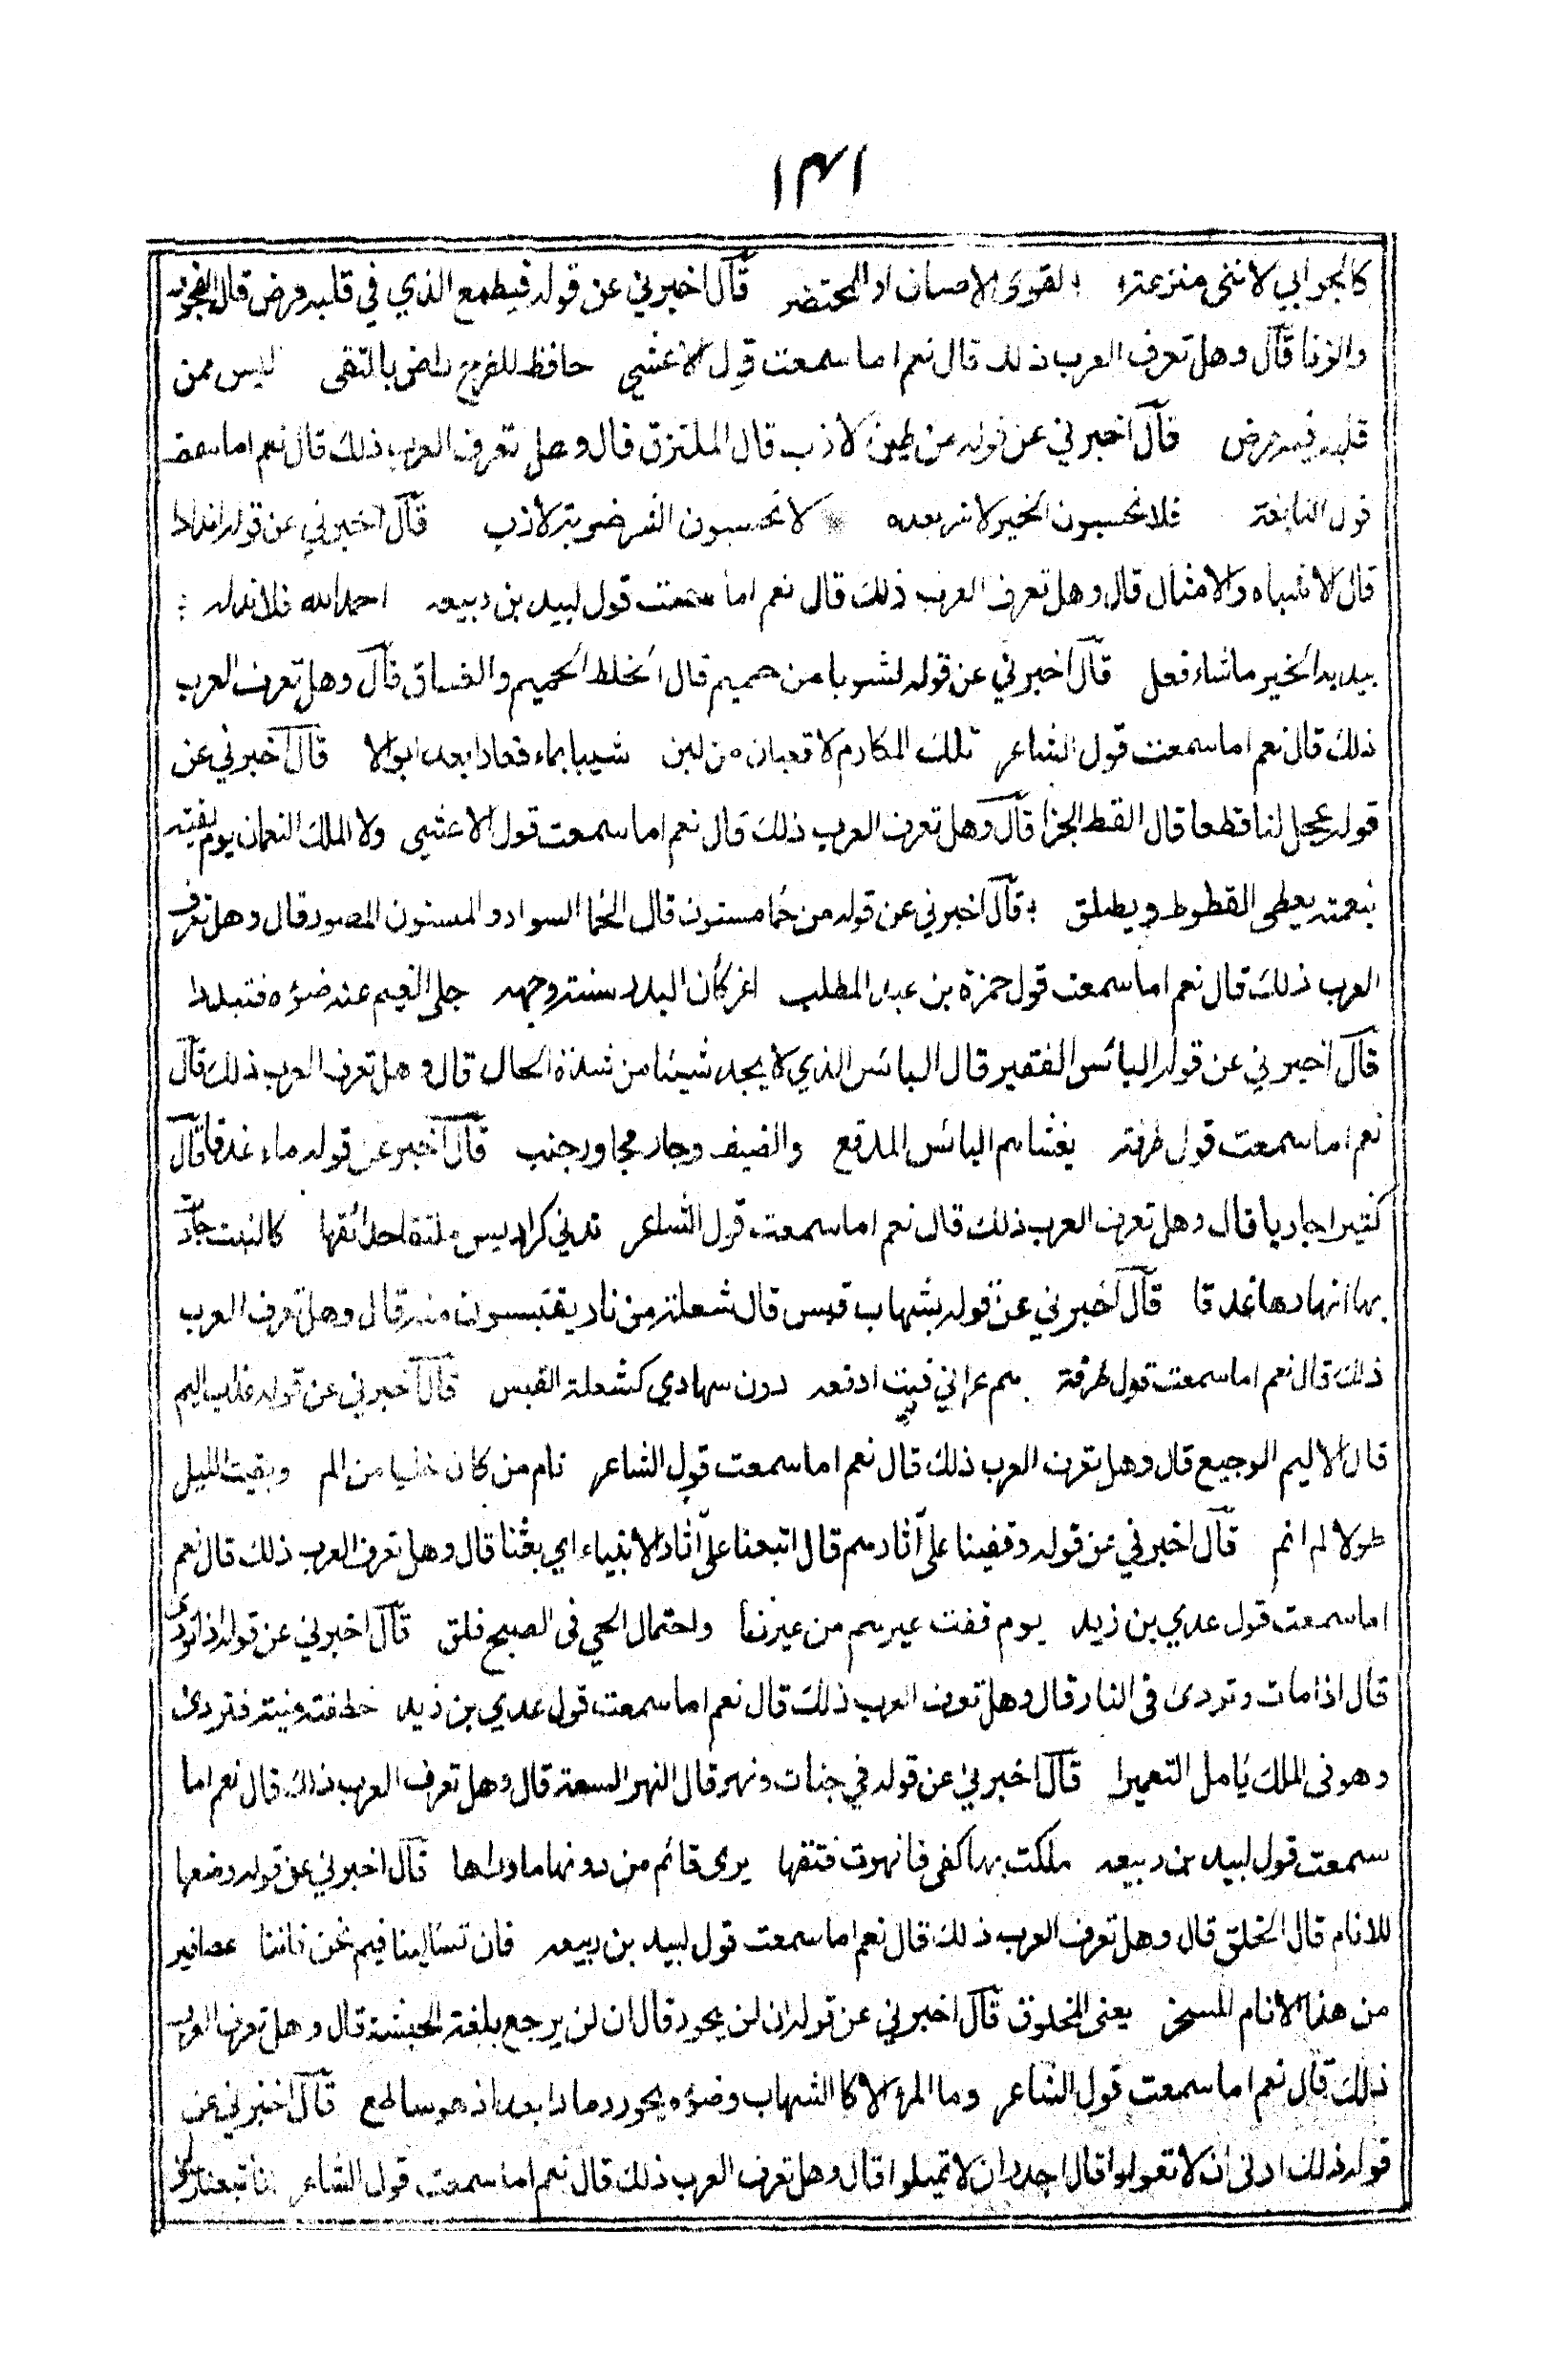 ١٣١
كالجوابي لا تنى مترعة لقرى الاضياف او للمحتضر قال اخبرني عن قوله فيطمع الذي في قلبه مرض قال الفجور
والزنا قال وهل تعرف العرب ذلك قال نعم اما سمعت قول الاعشى حافظ للفرج راض بالتقى ليس ممن
قلبه فيه مرض قال اخبرني عن قوله من طين لازب قال الملتزق قال وهل تعرف العرب ذلك قال نعم اما سمعت
قول النابغة فلا تحسبون الخير لا شر بعده لا تحسبون الشر ضربة لازب قال اخبرني عن قوله اندادا
قال الاشباه والامثال قال وهل تعرف العرب ذلك قال نعم اما سمعت قول لبيد بن ربيعه احمد الله فلا ند له
بيديه الخير ما شاء فعل قال اخبرني عن قوله لشوبا من حميم قال الخلط الحميم والغساق قال وهل تعرف العرب
ذلك قال نعم اما سمعت قول الشاعر تلك المكارم لا قعبان من لبن شيبا بماء فعادا بعد ابوالا قال اخبرني عن
قوله عجل لنا قطنا قال القط الجزا قال وهل تعرف العرب ذلك قال نعم اما سمعت قول الاعشى ولا الملك النعمان يوم لقيته
بنعمته يعطى القطوط ويطلق قال اخبرني عن قوله من حمأ مسنون قال الحمأ السواد والمسنون المصور قال وهل تعرف
العرب ذلك قال نعم اما سمعت قول حمزة بن عبد المطلب اغر كأن البدر سنة وجهه جلى الغيم عنه ضوءه فتبددا
قال اخبرني عن قوله البائس الفقير قال البائس الذي لا يجد شيئا من شدة الحال قال وهل تعرف العرب ذلك قال
نعم اما سمعت قول طرفة يغشاهم البائس المدقع والضيف وجار مجاور جنب قال اخبر عن قوله ماء غدقا قال
كثيرا جاريا قال وهل تعرف العرب ذلك قال نعم اما سمعت قول الشاعر تدني كراديس ملتفا حدائقها كالنبت جادت
بها انهارها غدقا قال اخبرني عن قوله بشهاب قبس قال شعلة من نار يقتبسون منه قال وهل تعرف العرب
ذلك قال نعم اما سمعت قول طرفة هم عراني فبت ادفعه دون سهادي كشعلة القبس قال اخبرني عن قوله عذاب اليم
قال الاليم الوجيع قال وهل تعرف العرب ذلك قال نعم اما سمعت قول الشاعر نام من كان خليا من الم وبقيت الليل
طولا لم انم قال اخبرني عن قوله وقفينا على آثارهم قال اتبعنا على آثار الانبياء اي بعثنا قال وهل تعرف العرب ذلك قال نعم
اما سمعت قول عدي بن زيد يوم قفت عيرهم من عيرنا واحتمال الحي فى الصبح فلق قال اخبرني عن قوله اذا تردى
قال اذا مات وتردى فى النار قال وهل تعرف العرب ذلك قال نعم اما سمعت قول عدي بن زيد خطفته منية فتردى
وهو فى الملك يأمل التعميرا قال اخبرني عن قوله في جنات ونهر قال النهر السعة قال وهل تعرف العرب ذلك قال نعم اما
سمعت قول لبيد بن ربيعه ملكت بها كفى فانهرت فتقها يرى قائم من دونها ما وراءها قال اخبرني عن قوله وضعها
للانام قال الخلق قال وهل تعرف العرب ذلك قال نعم اما سمعت قول لبيد بن ربيعه فان تسألينا فيم نحن فاننا عصافير
من هذا الانام المسحر يعنى المخلوق قال اخبرني عن قوله ان لن يحور قال ان لن يرجع بلغة الحبشة قال وهل تعرف العرب
ذلك قال نعم اما سمعت قول الشاعر وما المرء الا كالشهاب وضوءه يحور رمادا بعد اذ هو ساطع قال اخبرني عن
قوله ذلك ادنى ان لا تعولوا قال اجدر ان لا تميلوا قال وهل تعرف العرب ذلك قال نعم اما سمعت قول الشاعر انا تبعنا